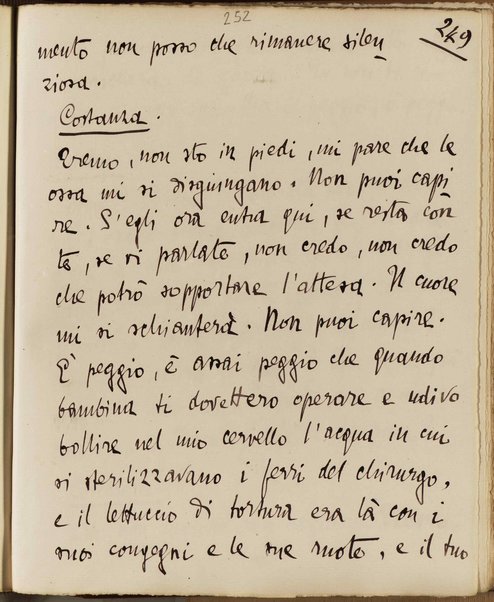 252
249
mento non posso che rimanere silen
ziosa.
Costanza.
Tremo, non sto in piedi, mi pare che le
ossa mi si disgiungano. Non puoi capi
re. S'egli ora entra qui, se resta con
te, se vi parlate, non credo, non credo
che potrò sopportare l'attesa. Il cuore
mi si schianterà. Non puoi capire.
E' peggio, è assai peggio che quando
bambina ti dovettero operare e udivo
bollire nel mio cervello l'acqua in cui
si sterilizzavano i ferri del chirurgo,
e il lettuccio di tortura era là con i
suoi congegni e le sue ruote, e il tuo